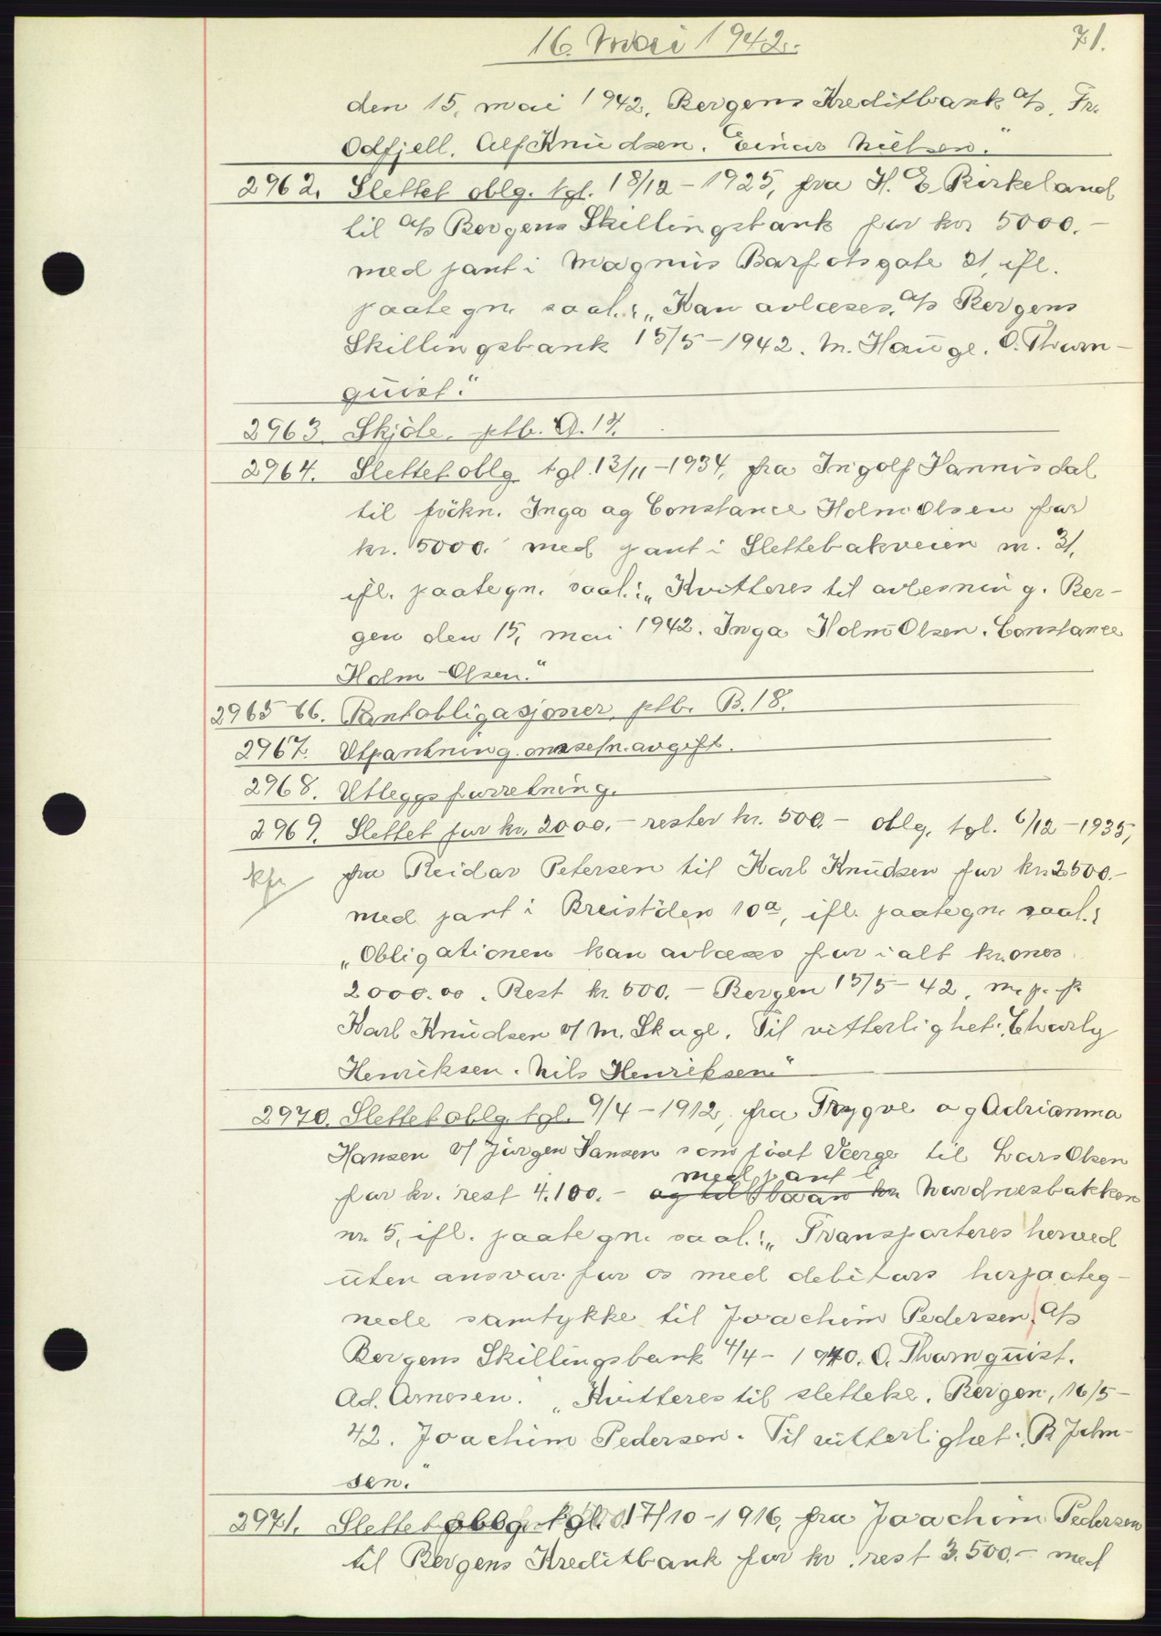 16. Mai 1942.
71.
den 15. mai 1942. Bergens Kreditbank A/S. Fr.
Odfjell. Alf Knudsen. Einar Nielsen."
2962. Slettet oblg. tgl. 18/12-1925, fra H. E. Birkeland
til A/S Bergens Skillingsbank for kr 5000.-
med pant i Magnus Barfotsgate 21, ifl.
paategn. saal.: "Kan avlæses. A/S Bergens
Skillingsbank 15/5-1942. M. Hauge. O. Thorn-
quist."
2963. Skjøte. ptb. A. 17.
2964. Slettet oblg tgl. 13/11-1934, fra Ingolf Hannisdal
til frökn. Inga og Constance Holm Olsen for
kr. 5000.- med pant i Slettebakveien nr. 31,
ifl. paategn. saal.: "Kvitteres til avlesning. Ber-
gen den 15. mai 1942. Inga Holm-Olsen. Constance
Holm-Olsen."
2965-66. Pantobligasjoner, ptb. B. 18.
2967. Utpantning. omsetn. avgift.
2968. Utleggsforretning.
2969. Slettet for kr. 2000.- rester kr. 500.- oblg. tgl. 6/12-1935,
kfr fra Reidar Petersen til Karl Knudsen for kr. 2500.-
med pant i Breistølen 10a, ifl. paategn. saal.:
"Obligationen kan avlæses for i alt kroner
2000.00. Rest kr. 500.- Bergen 15/5-42. m. p. p.
Karl Knudsen v/ M. Skage. Til vitterlighet: Charly
Henriksen. Nils Henriksen"
2970. Slettet oblg. tgl. 9/4-1912, fra Trygve og Adrianna
Hansen v/ Jörgen Hansen som født Værge til Lars Olsen
med pant i
for kr. rest 4.100.- og til Nordnesbakken
nr. 5, ifl. paategn. saal.: "Transporteres herved
uten ansvar for os med debitors herpaateg-
nede samtykke til Joachim Pedersen. A/S
Bergens Skillingsbank 4/4-1940. O. Thornquist.
Ad. Arnesen." "Kvitteres til slettelse. Bergen, 16/5-
42. Joachim Pedersen. Til vitterlighet: R. John-
sen."
2971. Slettet oblg. tgl. 17/10-1916, fra Joachim Pedersen
til Bergens Kreditbank for kr. rest 3.500.- med